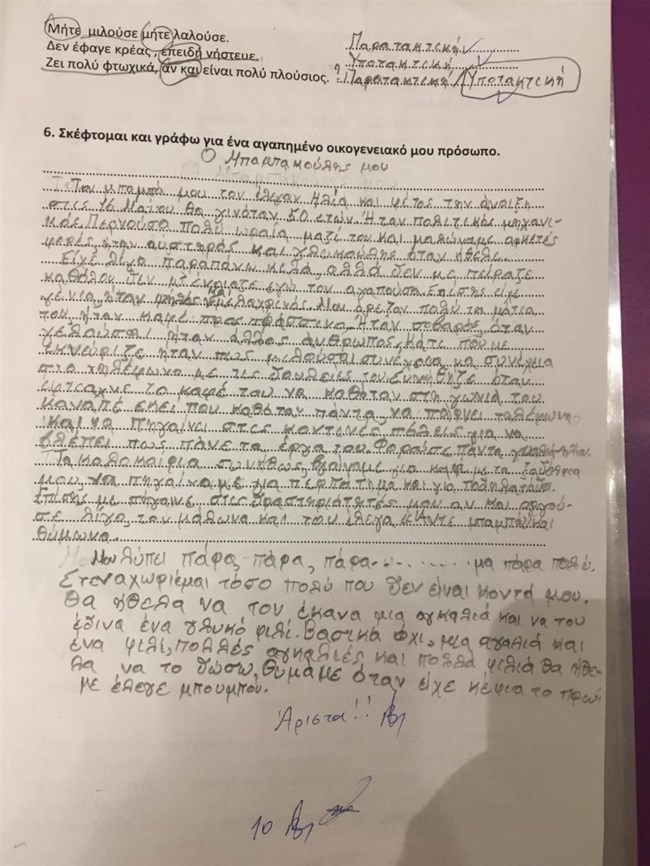 Μήτε μιλούσε μήτε λαλούσε. Παρατακτική
Δεν έφαγε κρέας, επειδή νήστευε. Υποτακτική
Ζει πολύ φτωχικά, αν και είναι πολύ πλούσιος. ή Παρατακτική / Υποτακτική
6. Σκέφτομαι και γράφω για ένα αγαπημένο οικογενειακό μου πρόσωπο.
Ο Μπαμπακούλης μου
Τον μπαμπά μου τον έλεγαν Ηλία και φέτος την άνοιξη
στις 16 Μαΐου θα γινόταν 50 ετών. Ήταν πολιτικός μηχανι-
κός. Περνούσα πολύ ωραία μαζί του και μαλώναμε αρκετές
φορές, ήταν αυστηρός και γλυκούλης όταν ήθελε.
Είχε λίγα παραπάνω κιλά, αλλά δεν με πείραζε
καθόλου δεν μ' ένοιαζε εγώ τον αγαπούσα. Επίσης είχε
γένια, ήταν ψηλός και μελαχρινός. Μου άρεζαν πολύ τα μάτια
του ήταν καφέ προς πράσινο. Ήταν σοβαρός, όταν
γελούσε ήταν άλλος άνθρωπος. Κάτι που με
εκνεύριζε ήταν πως μιλούσε συνέχεια μα συνέχεια
στο τηλέφωνο με τις δουλειές του. Συνήθιζε όταν
έφτιαχνε το καφέ του να καθόταν στη γωνία του
καναπέ εκεί που καθόταν πάντα, να παίρνει τηλέφωνα
και να πηγαίνει στις κοντινές πόλεις για να
βλέπει πως πάνε τα έργα του. Φορούσε πάντα γυαλιά ηλίου.
Τα καλοκαίρια συνήθως βγαίναμε για καφέ με τα ξαδέρφια
μου, να πηγαίναμε για περπάτημα και για ποδηλατάδα.
Επίσης με πήγαινε στις δραστηριότητές μου αν και αργού-
σε λίγο τον μάλωνα και του έλεγα «Άντε μπαμπά» και
θύμωνα.
Μου λείπει πάρα, πάρα, πάρα............ μα πάρα πολύ.
Στεναχωριέμαι τόσο πολύ που δεν είναι κοντά μου.
Θα ήθελα να τον έκανα μια αγκαλιά και να του
έδινα ένα γλυκό φιλί. Βασικά όχι, μια αγαλιά και
ένα φιλί, πολλές αγκαλιές και πολλά φιλιά θα ήθε-
λα να το δώσω. Θυμάμε όταν είχε κέφια το πρωί
με έλεγε μπουμπού.
Άριστα!!
10